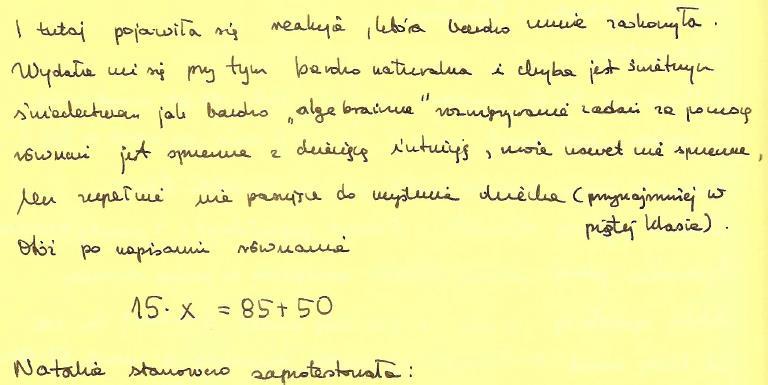 I tutaj pojawiła się reakcja, która bardzo mnie zaskoczyła.
Wydała mi się przy tym bardzo naturalna i chyba jest świetnym
świadectwem jak bardzo „algebraiczne" rozwiązywanie zadań za pomocą
równań jest sprzeczne z dziecięcą intuicją, może nawet nie sprzeczne,
lecz zupełnie nie pasujące do myślenia dziecka (przynajmniej w
piątej klasie).
Otóż po napisaniu równania
15 · x = 85 + 50
Natalia stanowczo zaprotestowała: